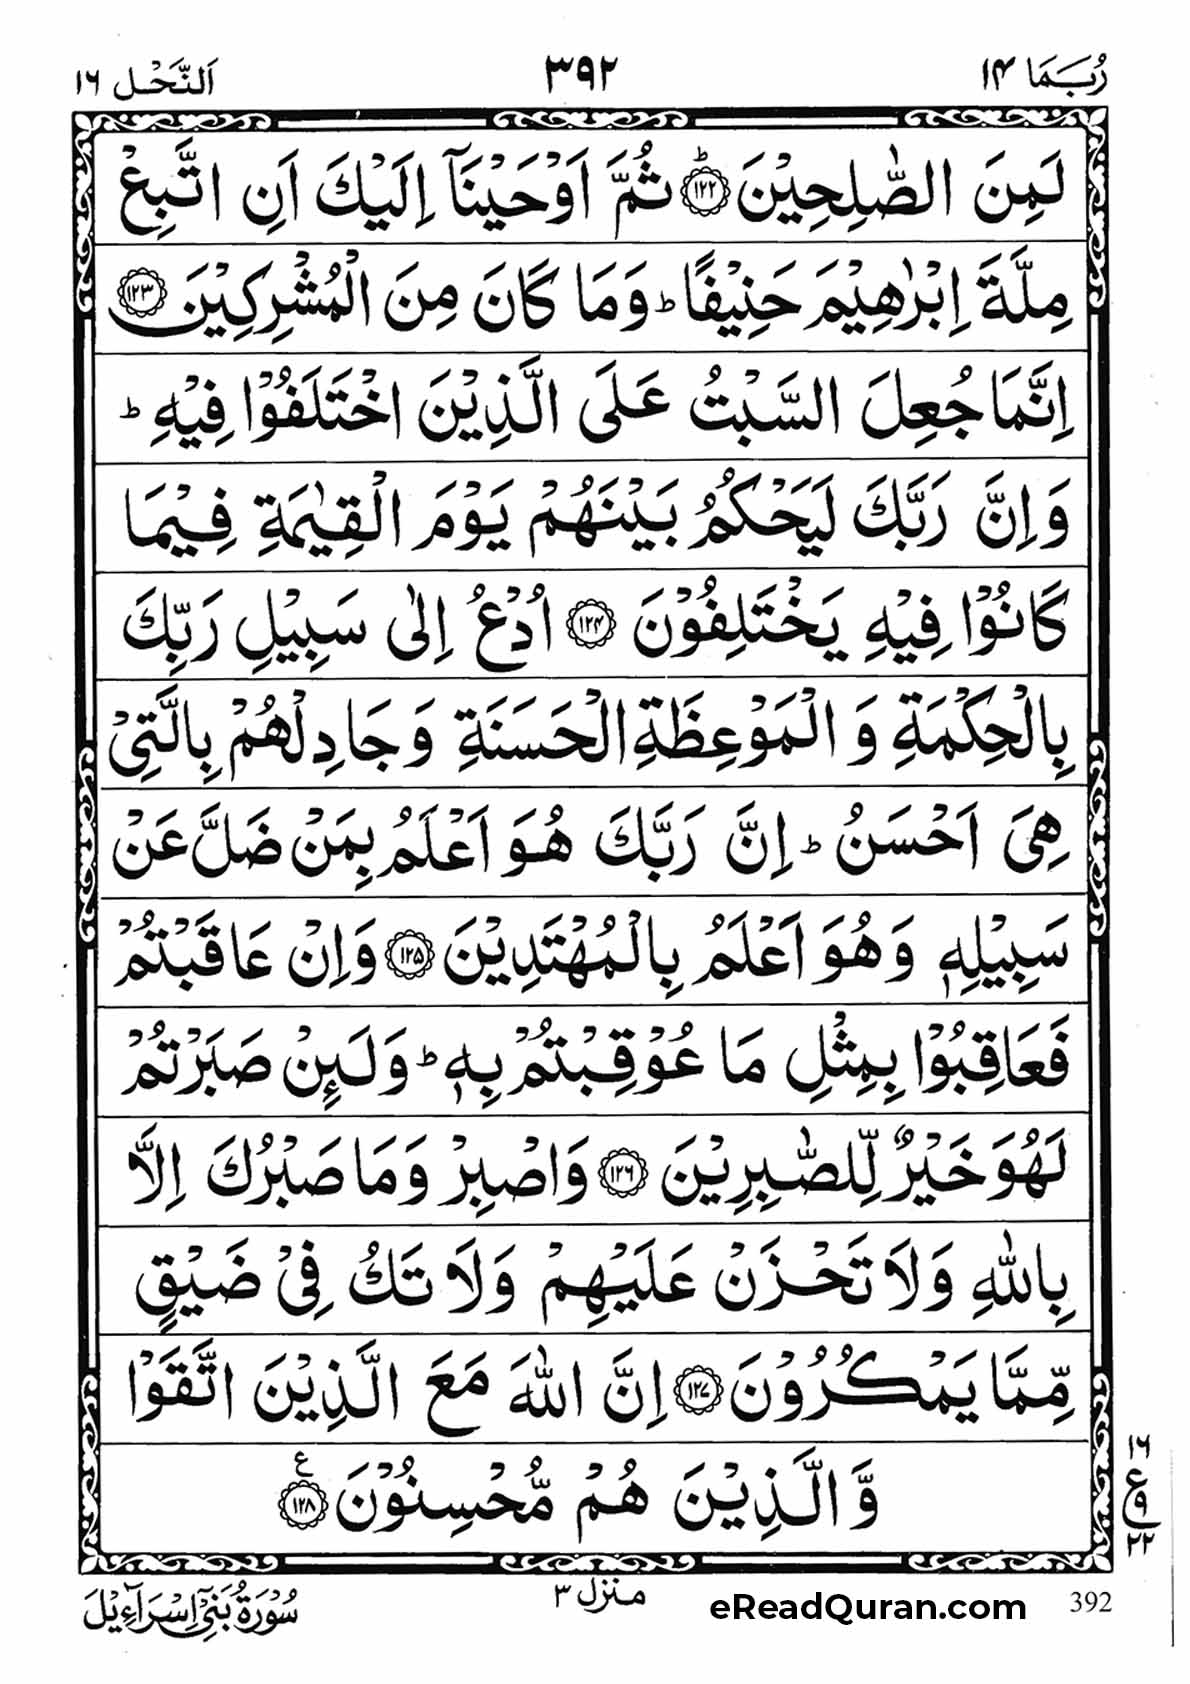 رُبَمَا ١٤
٣٩٢
اَلنَّحْل ١٦
لَمِنَ الصّٰلِحِيْنَ ؕ﴿۱۲۲﴾ ثُمَّ اَوْحَيْنَاۤ اِلَيْكَ اَنِ اتَّبِعْ
مِلَّةَ اِبْرٰهِيْمَ حَنِيْفًا ؕ وَمَا كَانَ مِنَ الْمُشْرِكِيْنَ ﴿۱۲۳﴾
اِنَّمَا جُعِلَ السَّبْتُ عَلَى الَّذِيْنَ اخْتَلَفُوْا فِيْهِ ؕ
وَاِنَّ رَبَّكَ لَيَحْكُمُ بَيْنَهُمْ يَوْمَ الْقِيٰمَةِ فِيْمَا
كَانُوْا فِيْهِ يَخْتَلِفُوْنَ ﴿۱۲۴﴾ اُدْعُ اِلٰى سَبِيْلِ رَبِّكَ
بِالْحِكْمَةِ وَ الْمَوْعِظَةِ الْحَسَنَةِ وَ جَادِلْهُمْ بِالَّتِىْ
هِىَ اَحْسَنُ ؕ اِنَّ رَبَّكَ هُوَ اَعْلَمُ بِمَنْ ضَلَّ عَنْ
سَبِيْلِهٖ وَهُوَ اَعْلَمُ بِالْمُهْتَدِيْنَ ﴿۱۲۵﴾ وَاِنْ عَاقَبْتُمْ
فَعَاقِبُوْا بِمِثْلِ مَا عُوْقِبْتُمْ بِهٖ ؕ وَلَئِنْ صَبَرْتُمْ
لَهُوَ خَيْرٌ لِّلصّٰبِرِيْنَ ﴿۱۲۶﴾ وَاصْبِرْ وَمَا صَبْرُكَ اِلَّا
بِاللّٰهِ وَلَا تَحْزَنْ عَلَيْهِمْ وَلَا تَكُ فِىْ ضَيْقٍ
مِّمَّا يَمْكُرُوْنَ ﴿۱۲۷﴾ اِنَّ اللّٰهَ مَعَ الَّذِيْنَ اتَّقَوْا
وَّ الَّذِيْنَ هُمْ مُّحْسِنُوْنَ ﴿۱۲۸﴾ ع
١٦
ع
٩
٢٢
392
eReadQuran.com
منزل ٣
سُوْرَةُ بَنِيْٓ اِسْرَآءِيْلَ